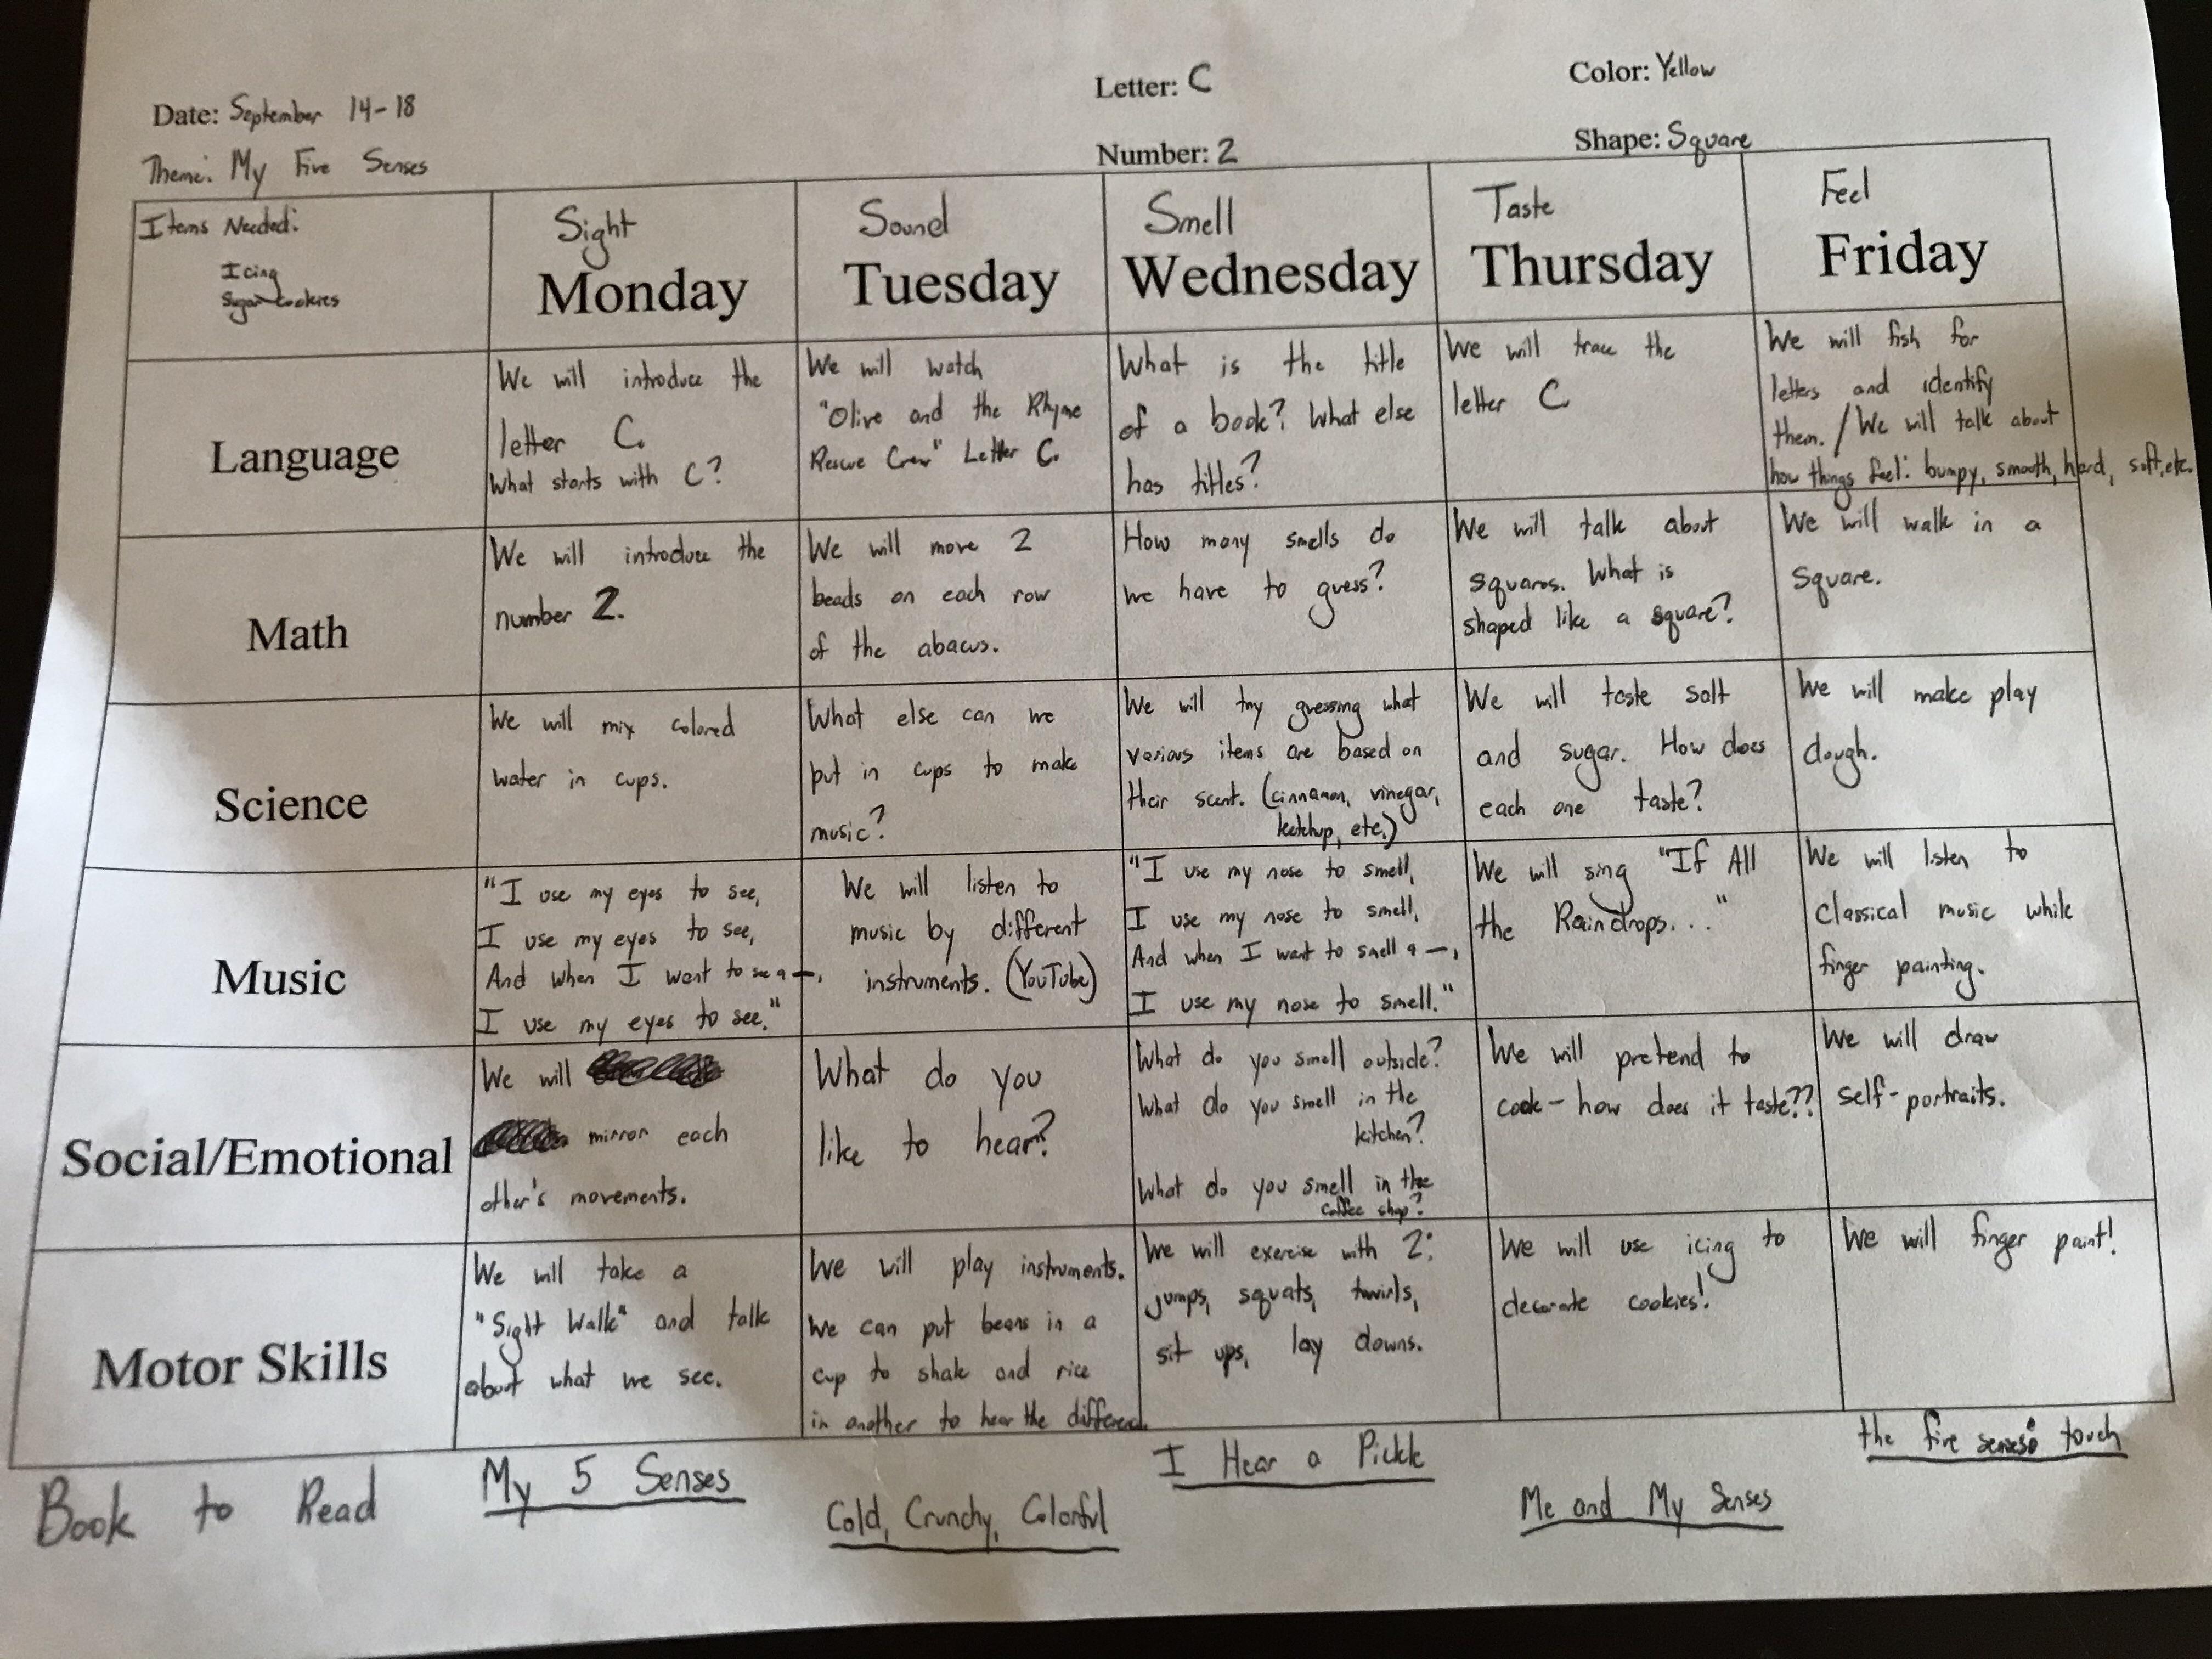 Date: September 14-18
Letter: C
Color: Yellow
Theme: My Five Senses
Number: 2
Shape: Square
Items Needed:
Icing
Sugar cookies
Sight
Monday
Sound
Tuesday
Smell
Wednesday
Taste
Thursday
Feel
Friday
Language
We will introduce the
letter C.
What starts with C?
We will watch
"Olive and the Rhyme
Rescue Crew" Letter C.
What is the title
of a book? What else
has titles?
We will trace the
letter C
We will fish for
letters and identify
them. / We will talk about
how things feel: bumpy, smooth, hard, soft, etc.
Math
We will introduce the
number 2.
We will move 2
beads on each row
of the abacus.
How many smells do
we have to guess?
We will talk about
squares. What is
shaped like a square?
We will walk in a
square.
Science
We will mix colored
water in cups.
What else can we
put in cups to make
music?
We will try guessing what
various items are based on
their scent. (cinnamon, vinegar,
ketchup, etc.)
We will taste salt
and sugar. How does
each one taste?
We will make play
dough.
Music
"I use my eyes to see,
I use my eyes to see,
And when I want to see a —,
I use my eyes to see."
We will listen to
music by different
instruments. (YouTube)
"I use my nose to smell,
I use my nose to smell,
And when I want to smell a —,
I use my nose to smell."
We will sing "If All
the Raindrops..."
We will listen to
classical music while
finger painting.
Social/Emotional
We will
mirror each
other's movements.
What do you
like to hear?
What do you smell outside?
What do you smell in the
kitchen?
What do you smell in the
coffee shop?
We will pretend to
cook - how does it taste??
We will draw
self-portraits.
Motor Skills
We will take a
"Sight Walk" and talk
about what we see.
We will play instruments.
We can put beans in a
cup to shake and rice
in another to hear the difference
We will exercise with 2:
jumps, squats, twirls,
sit ups, lay downs.
We will use icing to
decorate cookies!
We will finger paint!
Book to Read
My 5 Senses
Cold, Crunchy, Colorful
I Hear a Pickle
Me and My Senses
the five senses: touch